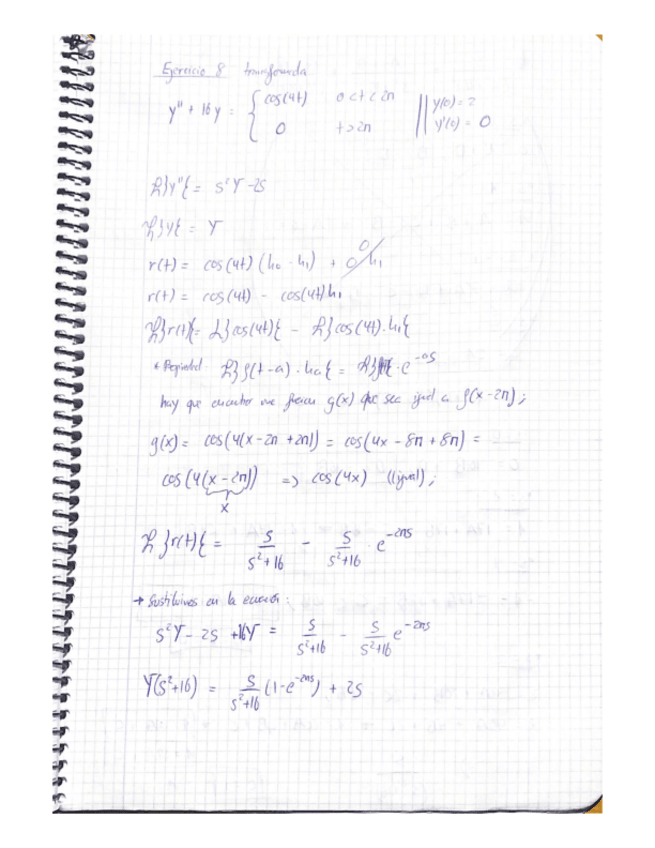 Ejercicio 8 transformada
y'' + 16y = { cos(4t) 0<t<2π || y(0)=2
0 t>2π y'(0)=0
ℒ}y''{= s²Y-2s
ℒ}y{ = Y
r(t) = cos(4t) (h₀ - h₁) + 0 h₁ 0
r(t) = cos(4t) - cos(4t)h₁
ℒ}r(t){= ℒ}cos(4t){ - ℒ}cos(4t)·h₁{
* ℒ}f(t-a)·ha{ = ·e^-as
hay que encontrar una g(x) que sea igual a f(x-2π);
g(x) = cos(4(x-2π+2π)) = cos(4x-8π+8π) =
cos(4(x-2π)) => cos(4x) (igual);
x
ℒ}r(t){ = s/(s²+16) - s/(s²+16) · e^-2πs
→ Sustituimos en la ecuación:
s²Y - 2s + 16Y = s/(s²+16) - s/(s²+16) e^-2πs
Y(s²+16) = s/(s²+16) (1-e^-2πs) + 2s